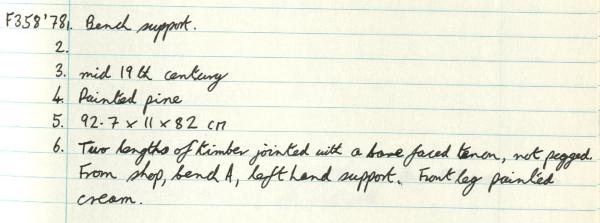 F358'78 1. Bench support.
2.
3. mid 19th century
4. Painted pine
5. 92.7 x 11 x 82 cm
6. Two lengths of timber jointed with a bare faced tenon, not pegged.
From shop, bench A, left hand support. Front leg painted
cream.